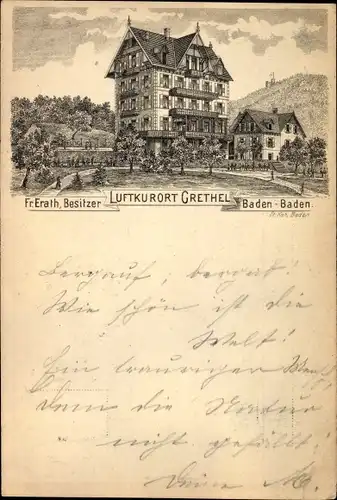 Fr. Erath, Besitzer LUFTKURORT GRETHEL Baden-Baden.
Bergauf, bergab!
Wie schön ist die
Welt!
Ein trauriger Mensch
dem die Natur
nicht gefällt!
Deine M.